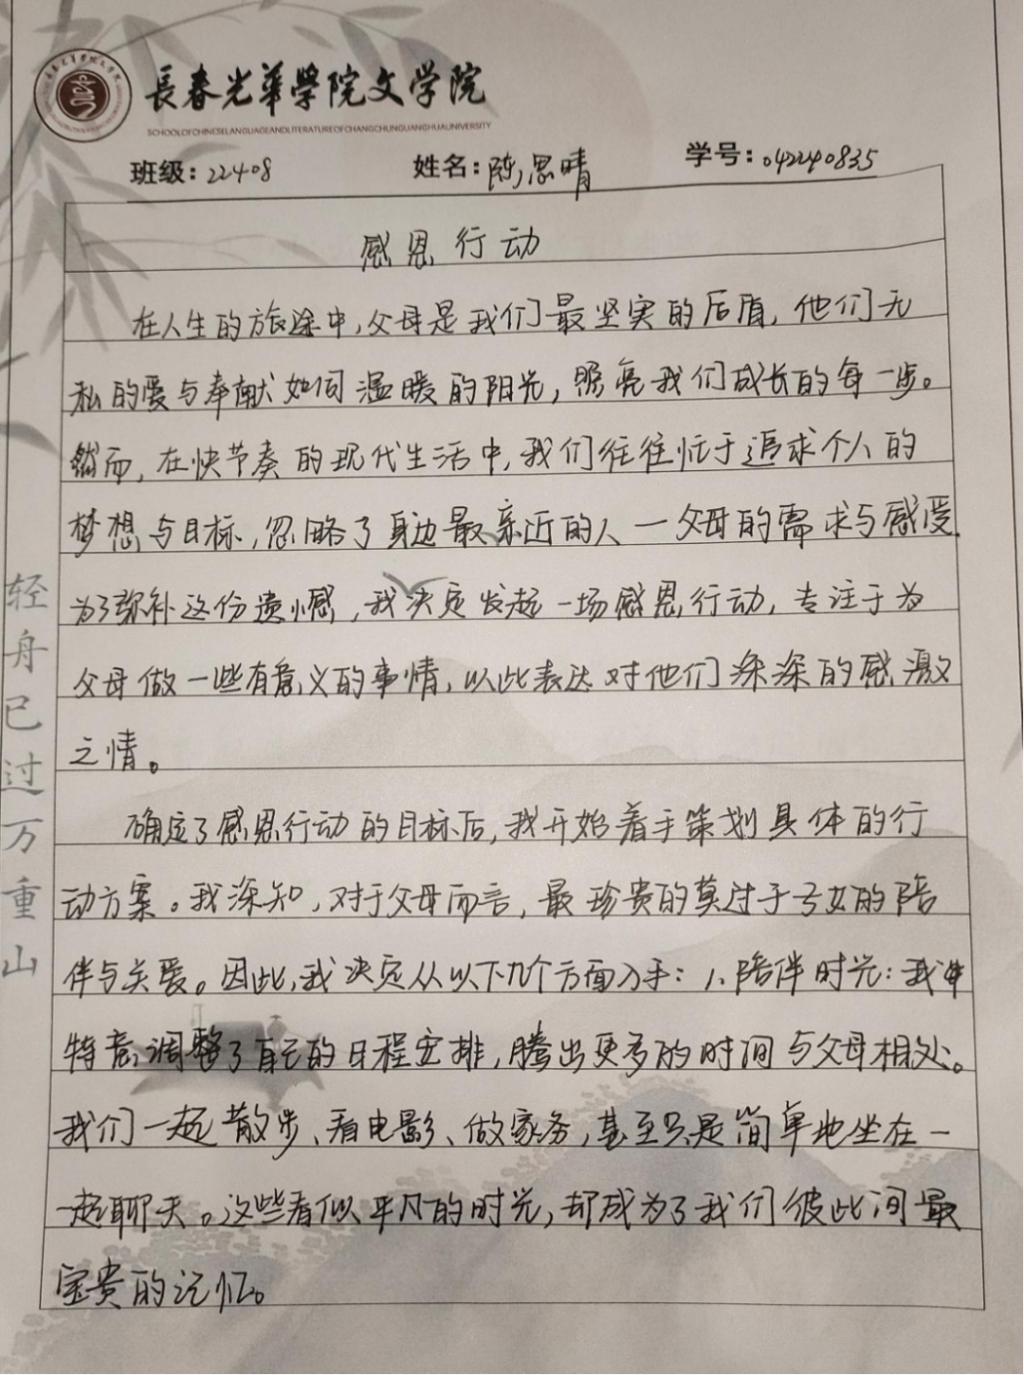 長春光華學院文学院
SCHOOLOFCHINESELANGUAGEANDLITERATUREOFCHANGCHUNGUANGHUAUNIVERSITY
班级：22408 姓名：陈思晴 学号：042240835
感恩行动
在人生的旅途中，父母是我们最坚实的后盾，他们无
私的爱与奉献如同温暖的阳光，照亮我们成长的每一步。
然而，在快节奏的现代生活中，我们往往忙于追求个人的
梦想与目标，忽略了身边最亲近的人一父母的需求与感受
为了弥补这份遗憾，我决定发起一场感恩行动，专注于为
父母做一些有意义的事情，以此表达对他们深深的感激
之情。
确定了感恩行动的目标后，我开始着手策划具体的行
动方案。我深知，对于父母而言，最珍贵的莫过于子女的陪
伴与关爱。因此，我决定从以下几个方面入手：1、陪伴时光：我
特意调整了自己的日程安排，腾出更多的时间与父母相处。
我们一起散步、看电影、做家务，甚至只是简单地坐在一
一起聊天。这些看似平凡的时光，却成为了我们彼此间最
宝贵的记忆。
轻舟已过万重山